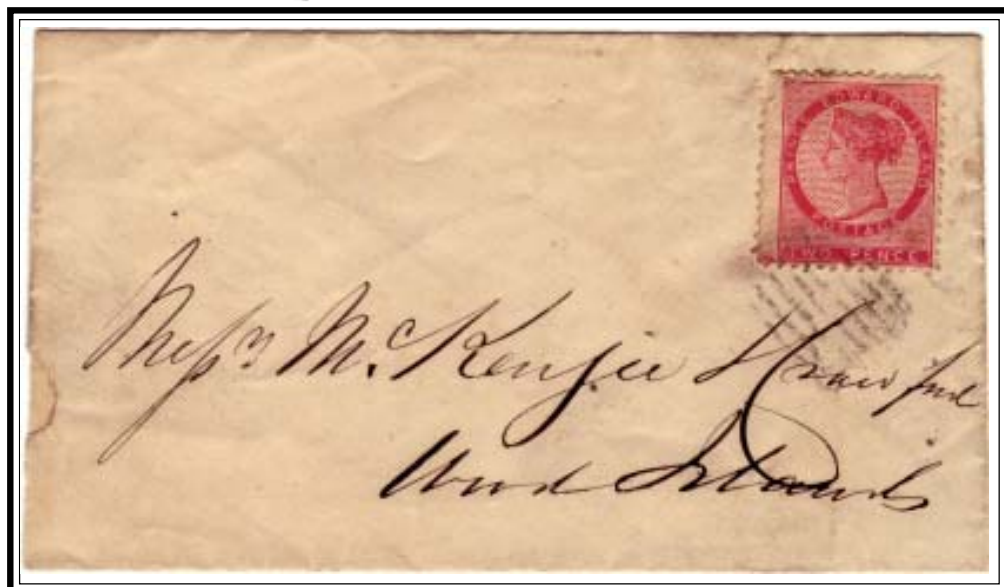 PRINCE EDWARD ISLAND
POSTAGE
TWO PENCE
Messrs McKenzie & Crawford
Wood Islands